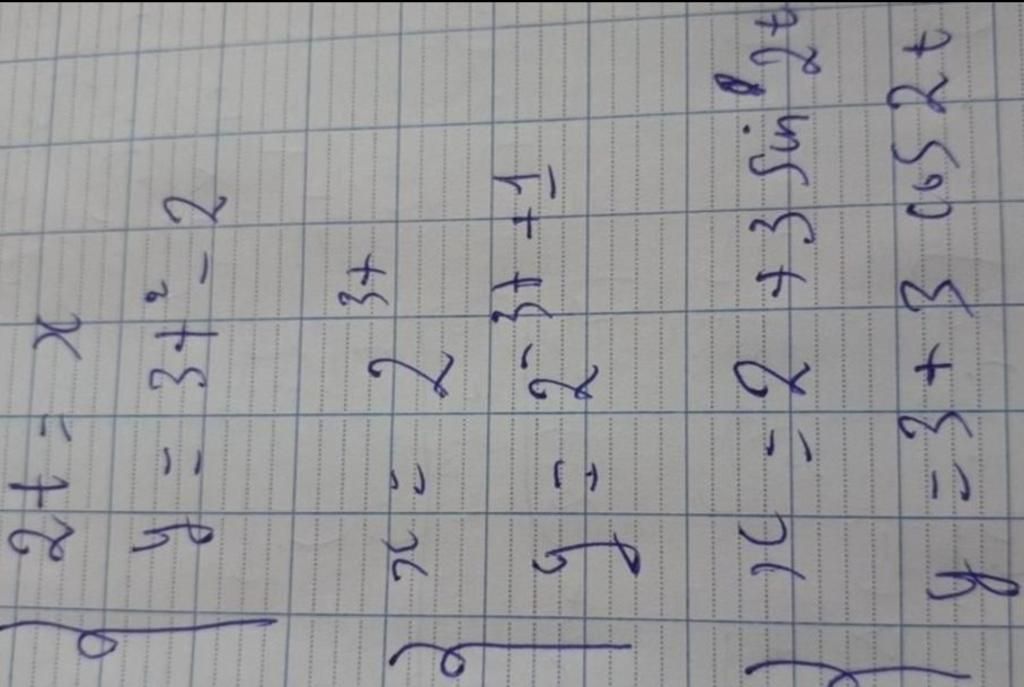 2t = x
y = 3t² - 2
x = 2^3t
y = 2^-3t + 1
x = 2 + 3 sin 2t
y = 3 + 3 cos 2t